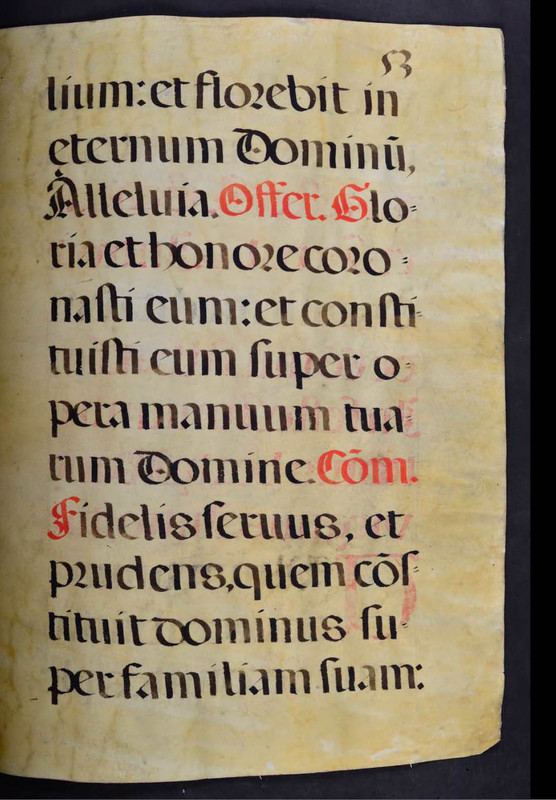 53
lium: et floꝛebit in
eternum Dominū,
Alleluia. Offer. Glo⸗
ria et honoꝛe coꝛo⸗
naſti eum: et conſti⸗
tuiſti eum ſuper o⸗
pera manuum tua⸗
rum Domine. Cōm.
Fidelis ſeruus, et
pꝛudens, quem cōſ⸗
tituit dominus ſu⸗
per familiam ſuam: